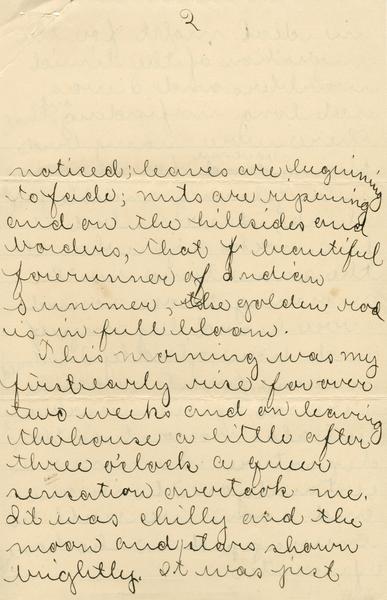 2
noticed; leaves are begining
to fade; nuts are ripening
and on the hillsides and
borders, that f beautiful
forerunner of Indian
Summer, the golden rod
is in full bloom.
This morning was my
first early rise for over
two weeks and on leaving
the house a little after
three o'clock a queer
sensation overtook me.
It was chilly and the
moon and stars shown
brightly. It was just